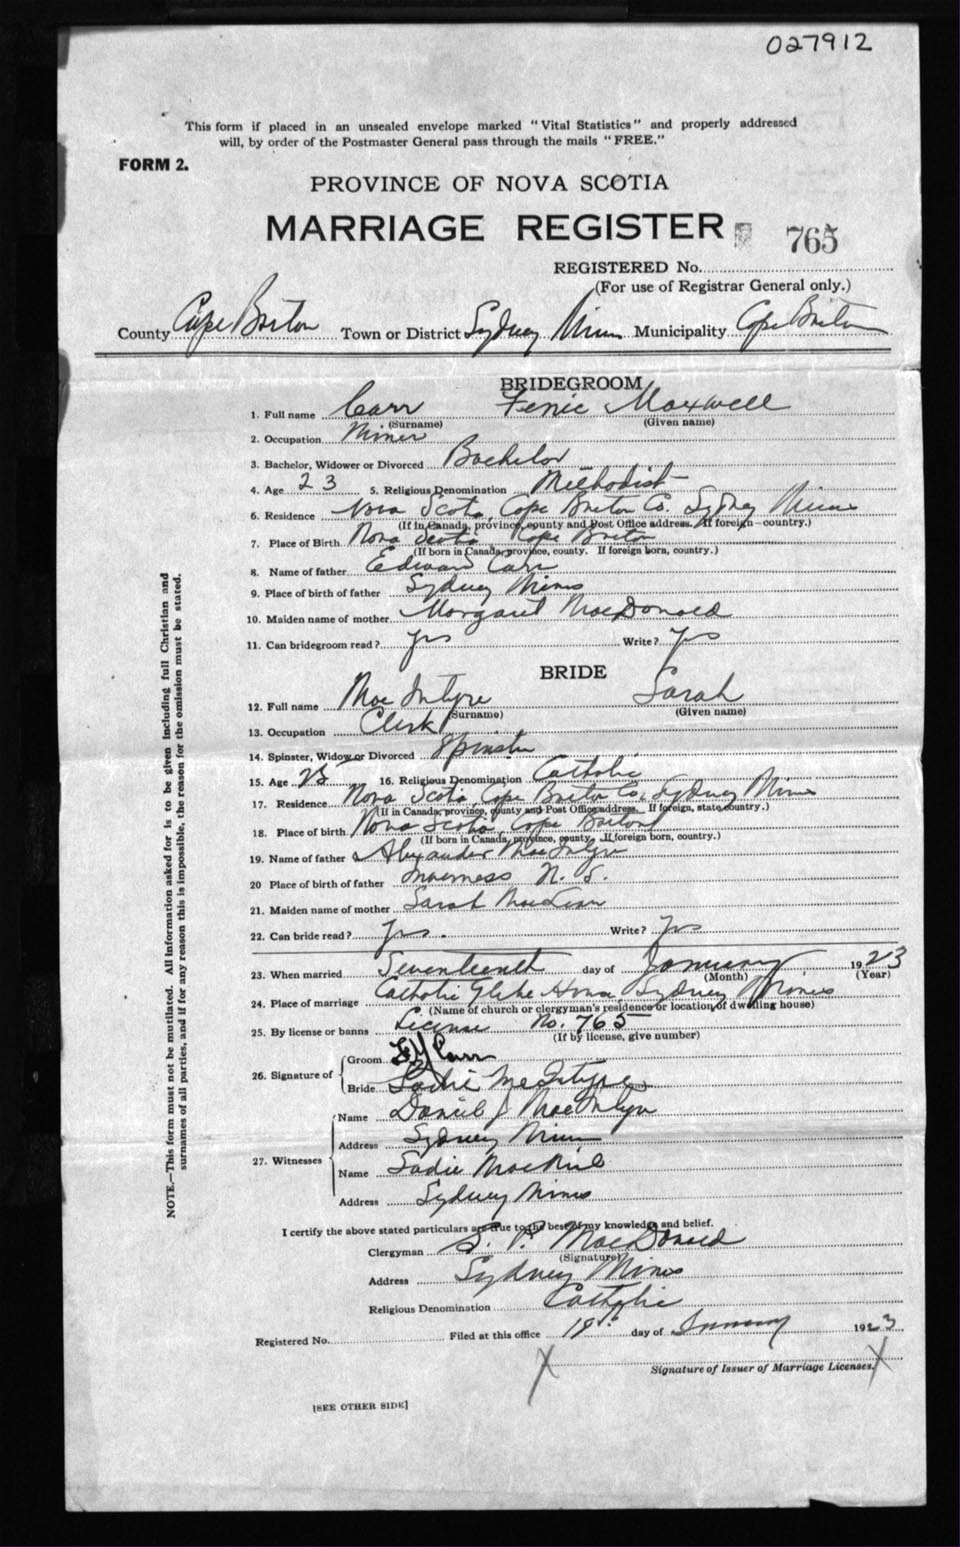 027912
This form if placed in an unsealed envelope marked "Vital Statistics" and properly addressed
will, by order of the Postmaster General pass through the mails "FREE."
FORM 2.
PROVINCE OF NOVA SCOTIA
MARRIAGE REGISTER 765
REGISTERED No.
(For use of Registrar General only.)
County Cape Breton Town or District Sydney Mines Municipality Cape Breton
BRIDEGROOM
1. Full name Carr Maxwell
(Surname) (Given name)
2. Occupation Miner
3. Bachelor, Widower or Divorced Bachelor
4. Age 23 5. Religious Denomination Methodist
6. Residence Nova Scotia, Cape Breton Co. Sydney Mines
(If in Canada, province, county and Post Office address. If foreign—country.)
7. Place of Birth Nova Scotia Cape Breton
(If born in Canada, province, county. If foreign born, country.)
8. Name of father Edward Carr
9. Place of birth of father Sydney Mines
10. Maiden name of mother Margaret MacDonald
11. Can bridegroom read? Yes Write? Yes
BRIDE
12. Full name MacIntyre Sarah
(Surname) (Given name)
13. Occupation Clerk
14. Spinster, Widow or Divorced Spinster
15. Age 25 16. Religious Denomination Catholic
17. Residence Nova Scotia, Cape Breton Co, Sydney Mines
(If in Canada, province, county and Post Office address. If foreign, state country.)
18. Place of birth Nova Scotia Cape Breton
(If born in Canada, province, county. If foreign born, country.)
19. Name of father Alexander MacIntyre
20 Place of birth of father Inverness N. S.
21. Maiden name of mother Sarah MacLean
22. Can bride read? Yes. Write? Yes
23. When married Seventeenth day of January 1923
(Month) (Year)
24. Place of marriage Catholic Glebe House, Sydney Mines
(Name of church or clergyman's residence or location of dwelling house)
25. By license or banns License No. 765
(If by license, give number)
26. Signature of
Groom Carr
Bride Sadie McIntyre
27. Witnesses
Name Daniel J MacIntyre
Address Sydney Mines
Name Sadie MacNeil
Address Sydney Mines
I certify the above stated particulars are true to the best of my knowledge and belief.
Clergyman MacDonald
(Signature)
Address Sydney Mines
Religious Denomination Catholic
Registered No. Filed at this office day of January 1923
Signature of Issuer of Marriage Licenses.
[SEE OTHER SIDE]
NOTE.—This form must not be mutilated. All information asked for is to be given including full Christian and
surnames of all parties, and if for any reason this is impossible, the reason for the omission must be stated.